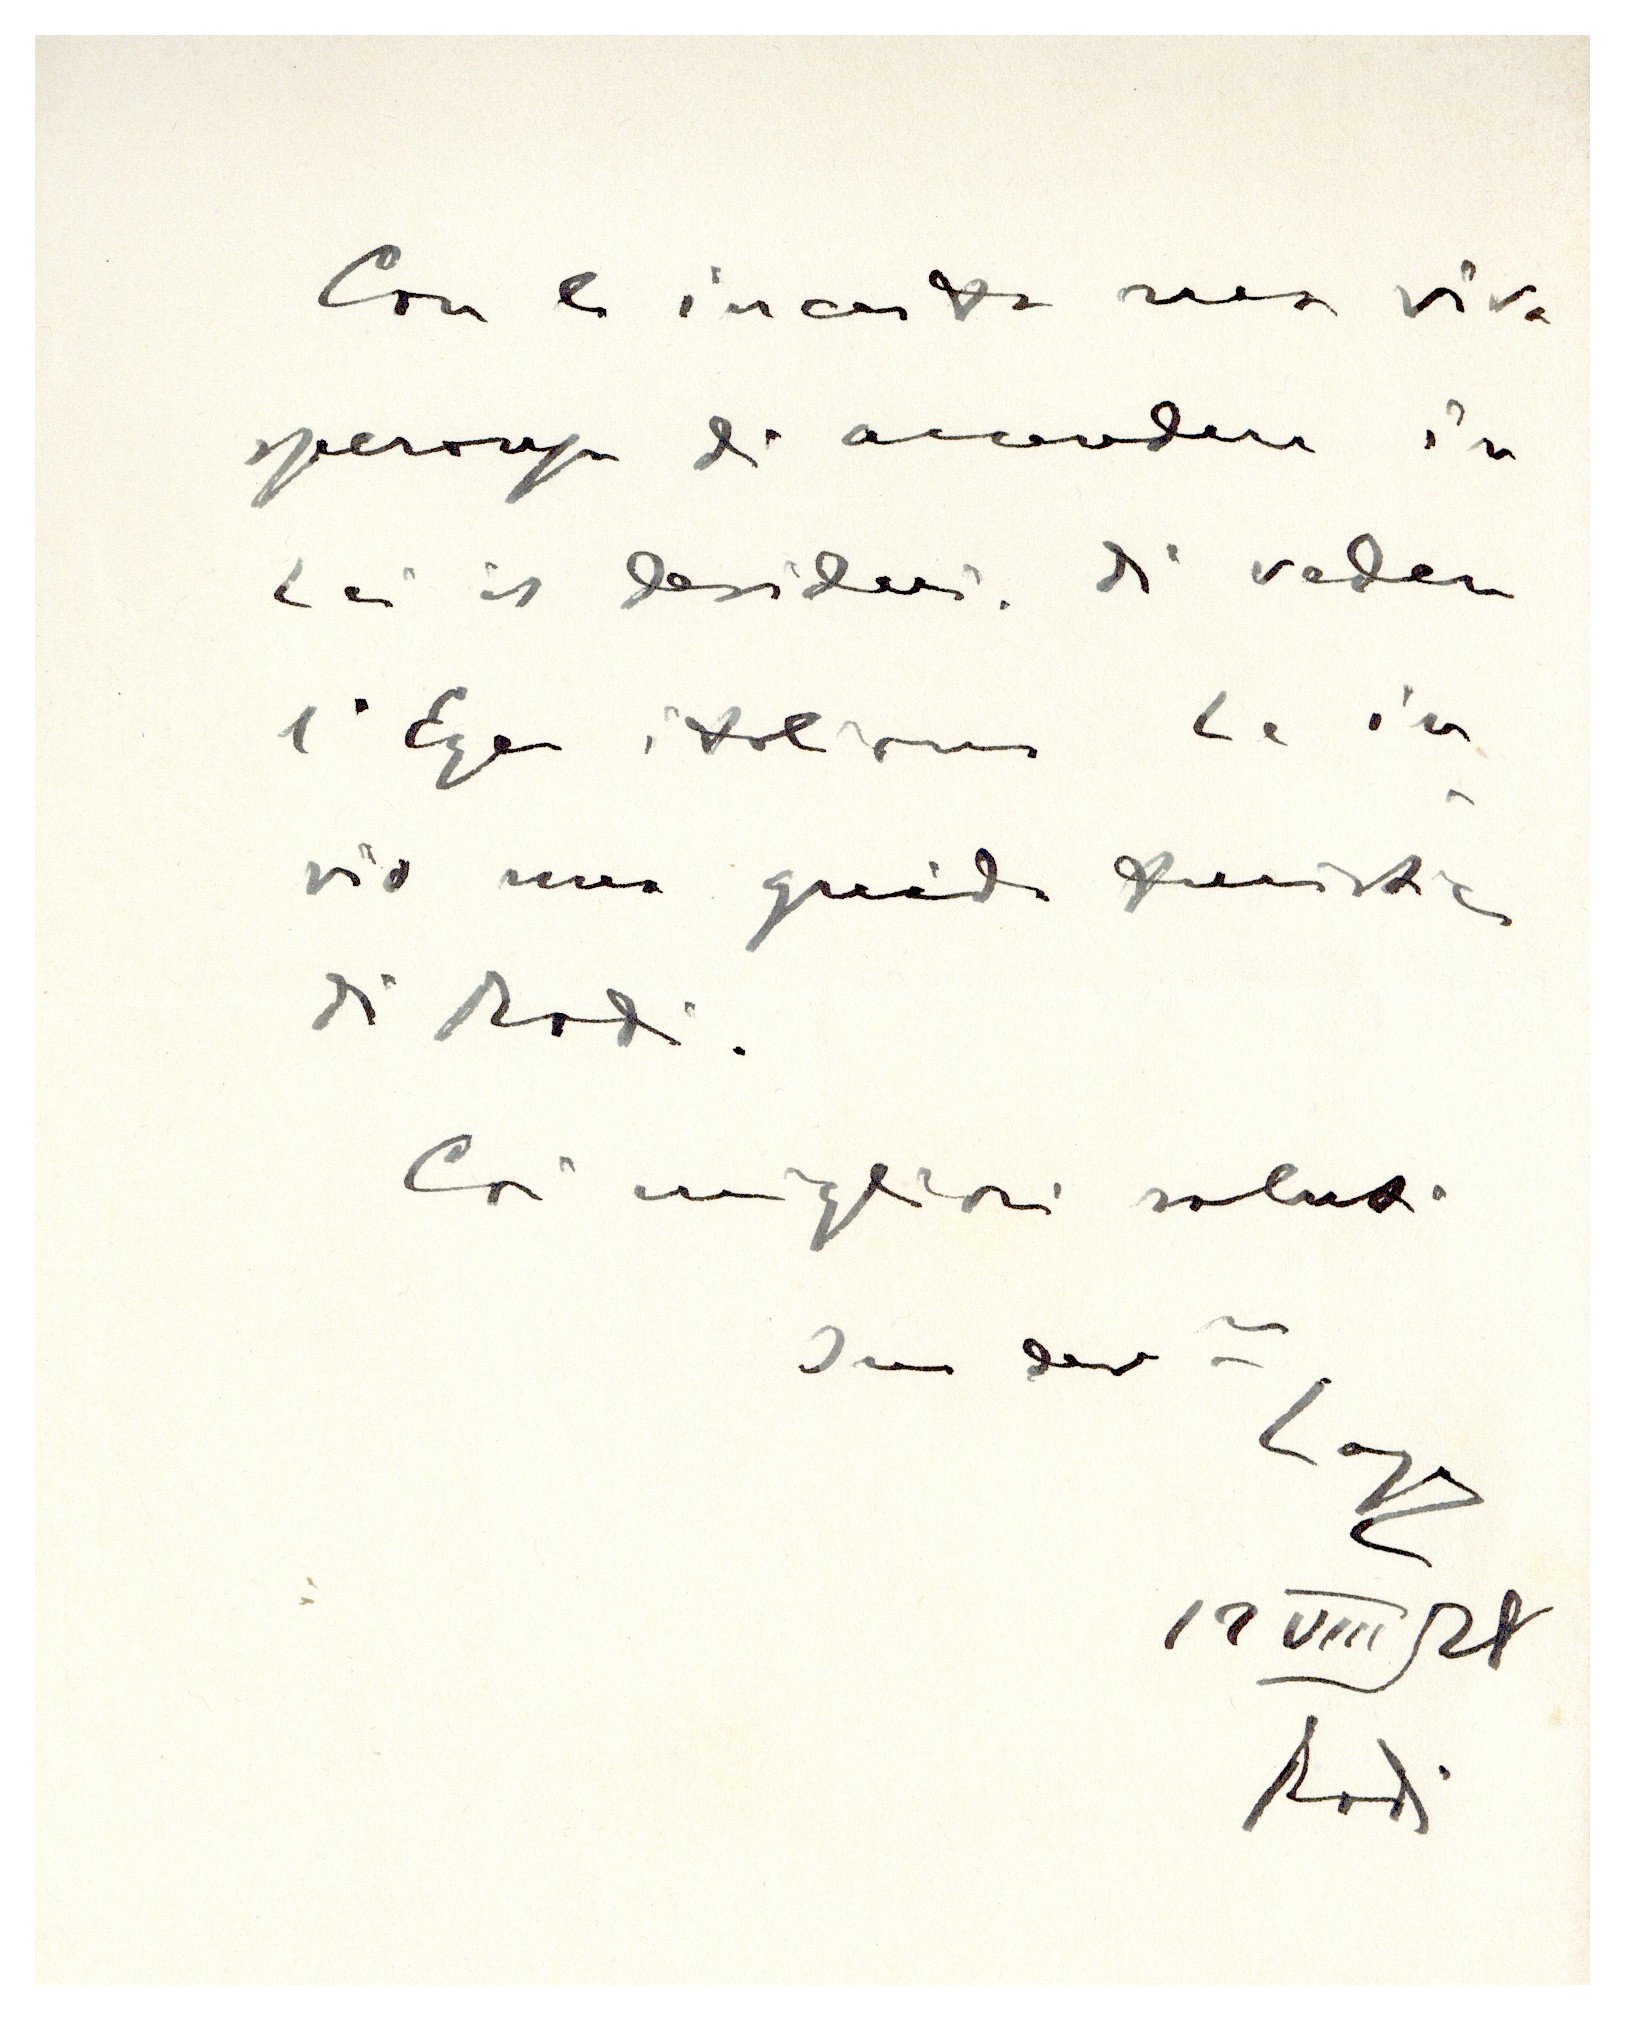 Con la incerta ma viva
speranza di accendere in
Lei il desiderio di vedere
l'Egeo italiano Le in
vio una guida turistica
di Rodi.
Coi migliori saluti
Suo dev mo
Lago
VIII 28
Rodi